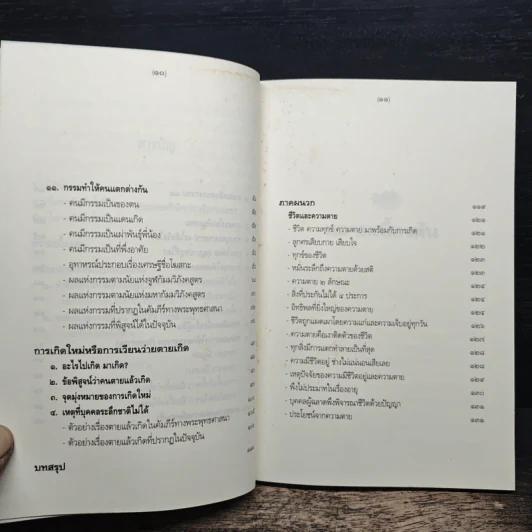 (๑๐)
๑๑. กรรมทำให้คนแตกต่างกัน
- คนมีกรรมเป็นของตน
- คนมีกรรมเป็นแดนเกิด
- คนมีกรรมเป็นเผ่าพันธุ์พี่น้อง
- คนมีกรรมเป็นที่พึ่งอาศัย
- อุทาหรณ์ประกอบเรื่องเศรษฐีชื่อโฆสกะ
- ผลแห่งกรรมตามนัยแห่งจูฬกัมมวิภังคสูตร
- ผลแห่งกรรมตามนัยแห่งมหากัมมวิภังคสูตร
- ผลแห่งกรรมที่ปรากฏในคัมภีร์ทางพระพุทธศาสนา
- ผลแห่งกรรมที่พิสูจน์ได้ในปัจจุบัน
การเกิดใหม่หรือการเวียนว่ายตายเกิด
๑. อะไรไปเกิด มาเกิด?
๒. ข้อพิสูจน์ว่าคนตายแล้วเกิด
๓. จุดมุ่งหมายของการเกิดใหม่
๔. เหตุที่บุคคลระลึกชาติไม่ได้
- ตัวอย่างเรื่องตายแล้วเกิดในคัมภีร์ทางพระพุทธศาสนา
- ตัวอย่างเรื่องตายแล้วเกิดที่ปรากฏในปัจจุบัน
บทสรุป
(๑๑)
ภาคผนวก ๑๑๙
ชีวิตและความตาย ๑๒๑
- ชีวิต ความทุกข์ ความตาย มาพร้อมกับการเกิด ๑๒๑
- ลูกศรเสียบกาย เสียบใจ ๑๒๒
- ทุกข์ของชีวิต
- หมั่นระลึกถึงความตายด้วยสติ
- ความตาย ๒ ลักษณะ
- สิ่งที่ประกันไม่ได้ ๔ ประการ
- อิทธิพลที่ยิ่งใหญ่ของความตาย
- ชีวิตถูกแผดเผาโดยความแก่และความเจ็บอยู่ทุกวัน
- ความตายคือเงาติดตัวของชีวิต
- ทุกสิ่งมีการแตกทำลายเป็นที่สุด
- ความมีชีวิตอยู่ ช่างไม่แน่นอนเสียเลย
- เหตุปัจจัยของความมีชีวิตอยู่และความตาย
- พึงไม่ประมาทในเรื่องอายุ
- บุคคลผู้ฉลาดพึงพิจารณาชีวิตด้วยปัญญา ๑๓๑
- ประโยชน์จากความตาย ๑๓๑